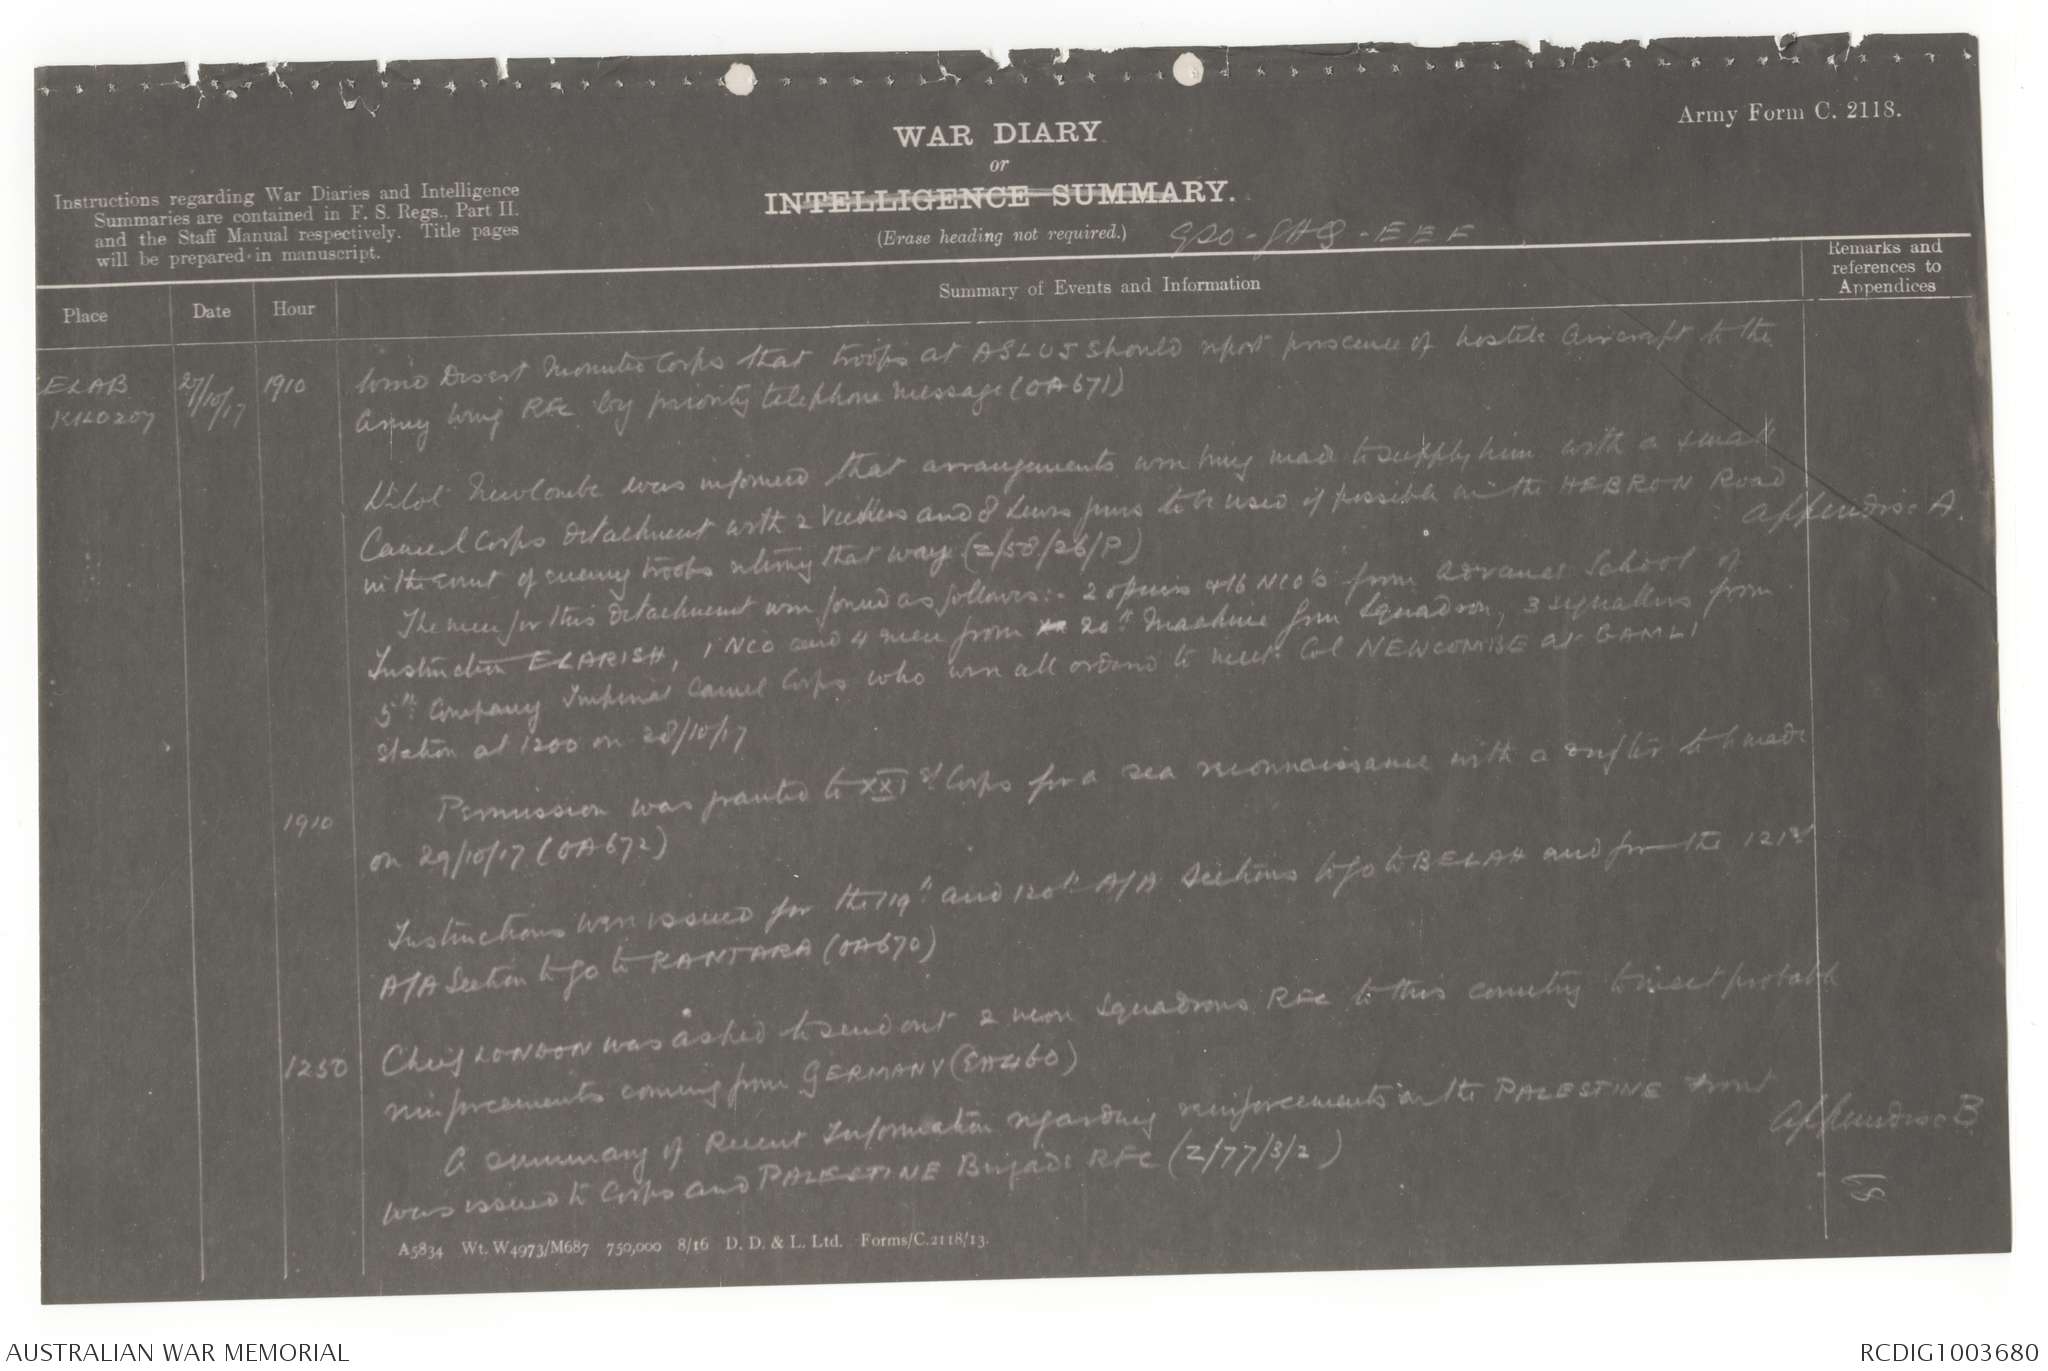 Army Form C. 2118.
WAR DIARY
or
INTELLIGENCE SUMMARY.
(Erase heading not required.)
GSO - GHQ - EEF
Instructions regarding War Diaries and Intelligence
Summaries are contained in F. S. Regs., Part II.
and the Staff Manual respectively. Title pages
will be prepared in manuscript.
Place
Date
Hour
Summary of Events and Information
Remarks and
references to
Appendices
ELAB
KILO 207
27/10/17
1910
Desert Mounted Corps that troops at ASLUJ should report presence of hostile aircraft to the
Army Wing RFC by priority telephone message (OA671)
Newcombe was informed that arrangements were being made to supply him with a small
Camel Corps detachment with 2 Vickers and 8 Lewis guns to be used if possible on the HEBRON Road
in the event of enemy troops retiring that way (Z/58/26/P)
Appendix A.
The men for this detachment were found as follows:- 2 officers & 16 NCO's from Advanced School of
Instruction EL ARISH, 1 NCO and 4 men from 20th Machine Gun Squadron, 3 signallers from
5th Company Imperial Camel Corps who were all ordered to meet Col NEWCOMBE at GAMLI
station at 1200 on 28/10/17
1910
Permission was granted to XXIst Corps for a sea reconnaissance with a drifter to be made
on 29/10/17 (OA672)
Instructions were issued for the 119th and 120th A/A Sections to go to BELAH and for the 121st
A/A Section to go to KANTARA (OA670)
1250
Chief LONDON was asked to send out 2 more Squadrons RFC to this country to meet probable
reinforcements coming from GERMANY (EA460)
A summary of Recent Information regarding reinforcements on the PALESTINE Front
was issued to Corps and PALESTINE Brigade RFC (Z/77/3/2)
Appendix B
A5834 Wt. W4973/M687 750,000 8/16 D. D. & L. Ltd. Forms/C.2118/13.
AUSTRALIAN WAR MEMORIAL
RCDIG1003680